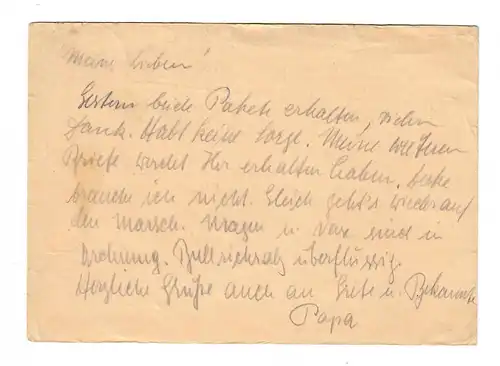 Meine Lieben!
Gestern beide Pakete erhalten, vielen
Dank. Habt keine Sorge. Meine weiteren
Briefe werdet Ihr erhalten haben. Decke
brauche ich nicht. Gleich geht's wieder auf
den Marsch. Magen u. sind in
Ordnung. Bullrichsalz überflüssig.
Herzliche Grüße auch an Grete u. Bekannte
Papa